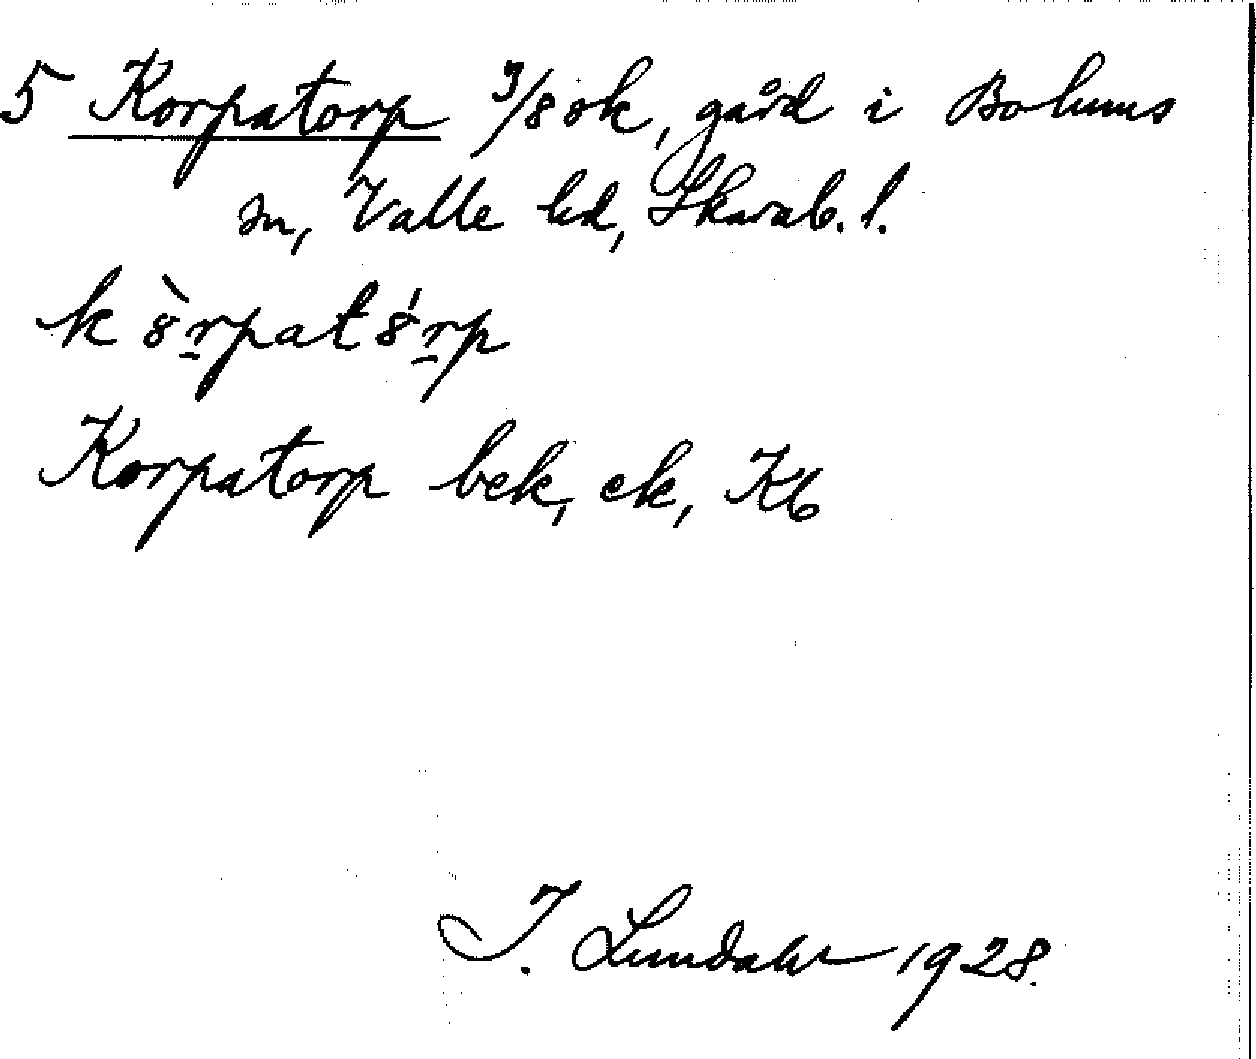 5 Korpatorp 3/8 sk, gård i Bolums
sn, Valle hd, Skarab. l.
k ò̈rpatö́rp
Korpatorp bek, ek, Kb
I. Lundahl 1928.